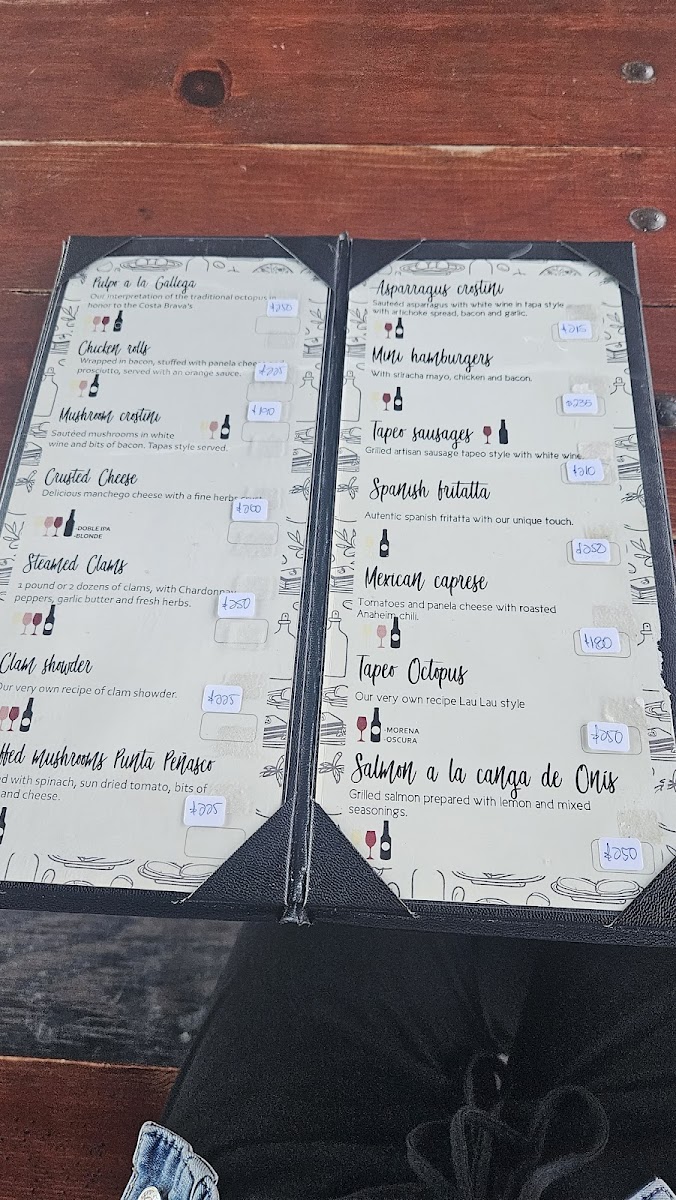 Pulpo a la Gallega
Our interpretation of the traditional octopus in
honor to the Costa Brava's
$250
Chicken rolls
Wrapped in bacon, stuffed with panela chee
prosciutto, served with an orange sauce.
$225
Mushroom crostini
$190
Sautéed mushrooms in white
wine and bits of bacon. Tapas style served.
Crusted Cheese
Delicious manchego cheese with a fine herbs crust
$200
-DOBLE IPA
-BLONDE
Steamed Clams
1 pound or 2 dozens of clams, with Chardonnay
peppers, garlic butter and fresh herbs.
$250
Clam showder
Our very own recipe of clam showder.
$225
ffed mushrooms Punta Peñasco
d with spinach, sun dried tomato, bits of
and cheese.
$225
Asparragus crostini
Sautéed asparragus with white wine in tapa style
with artichoke spread, bacon and garlic.
$215
Mini hamburgers
With sriracha mayo, chicken and bacon.
$235
Tapeo sausages
Grilled artisan sausage tapeo style with white wine
$210
Spanish fritatta
Autentic spanish fritatta with our unique touch.
$250
Mexican caprese
Tomatoes and panela cheese with roasted
Anaheim chili.
$180
Tapeo Octopus
Our very own recipe Lau Lau style
-MORENA
-OSCURA
$250
Salmon a la canga de Onis
Grilled salmon prepared with lemon and mixed
seasonings.
$250